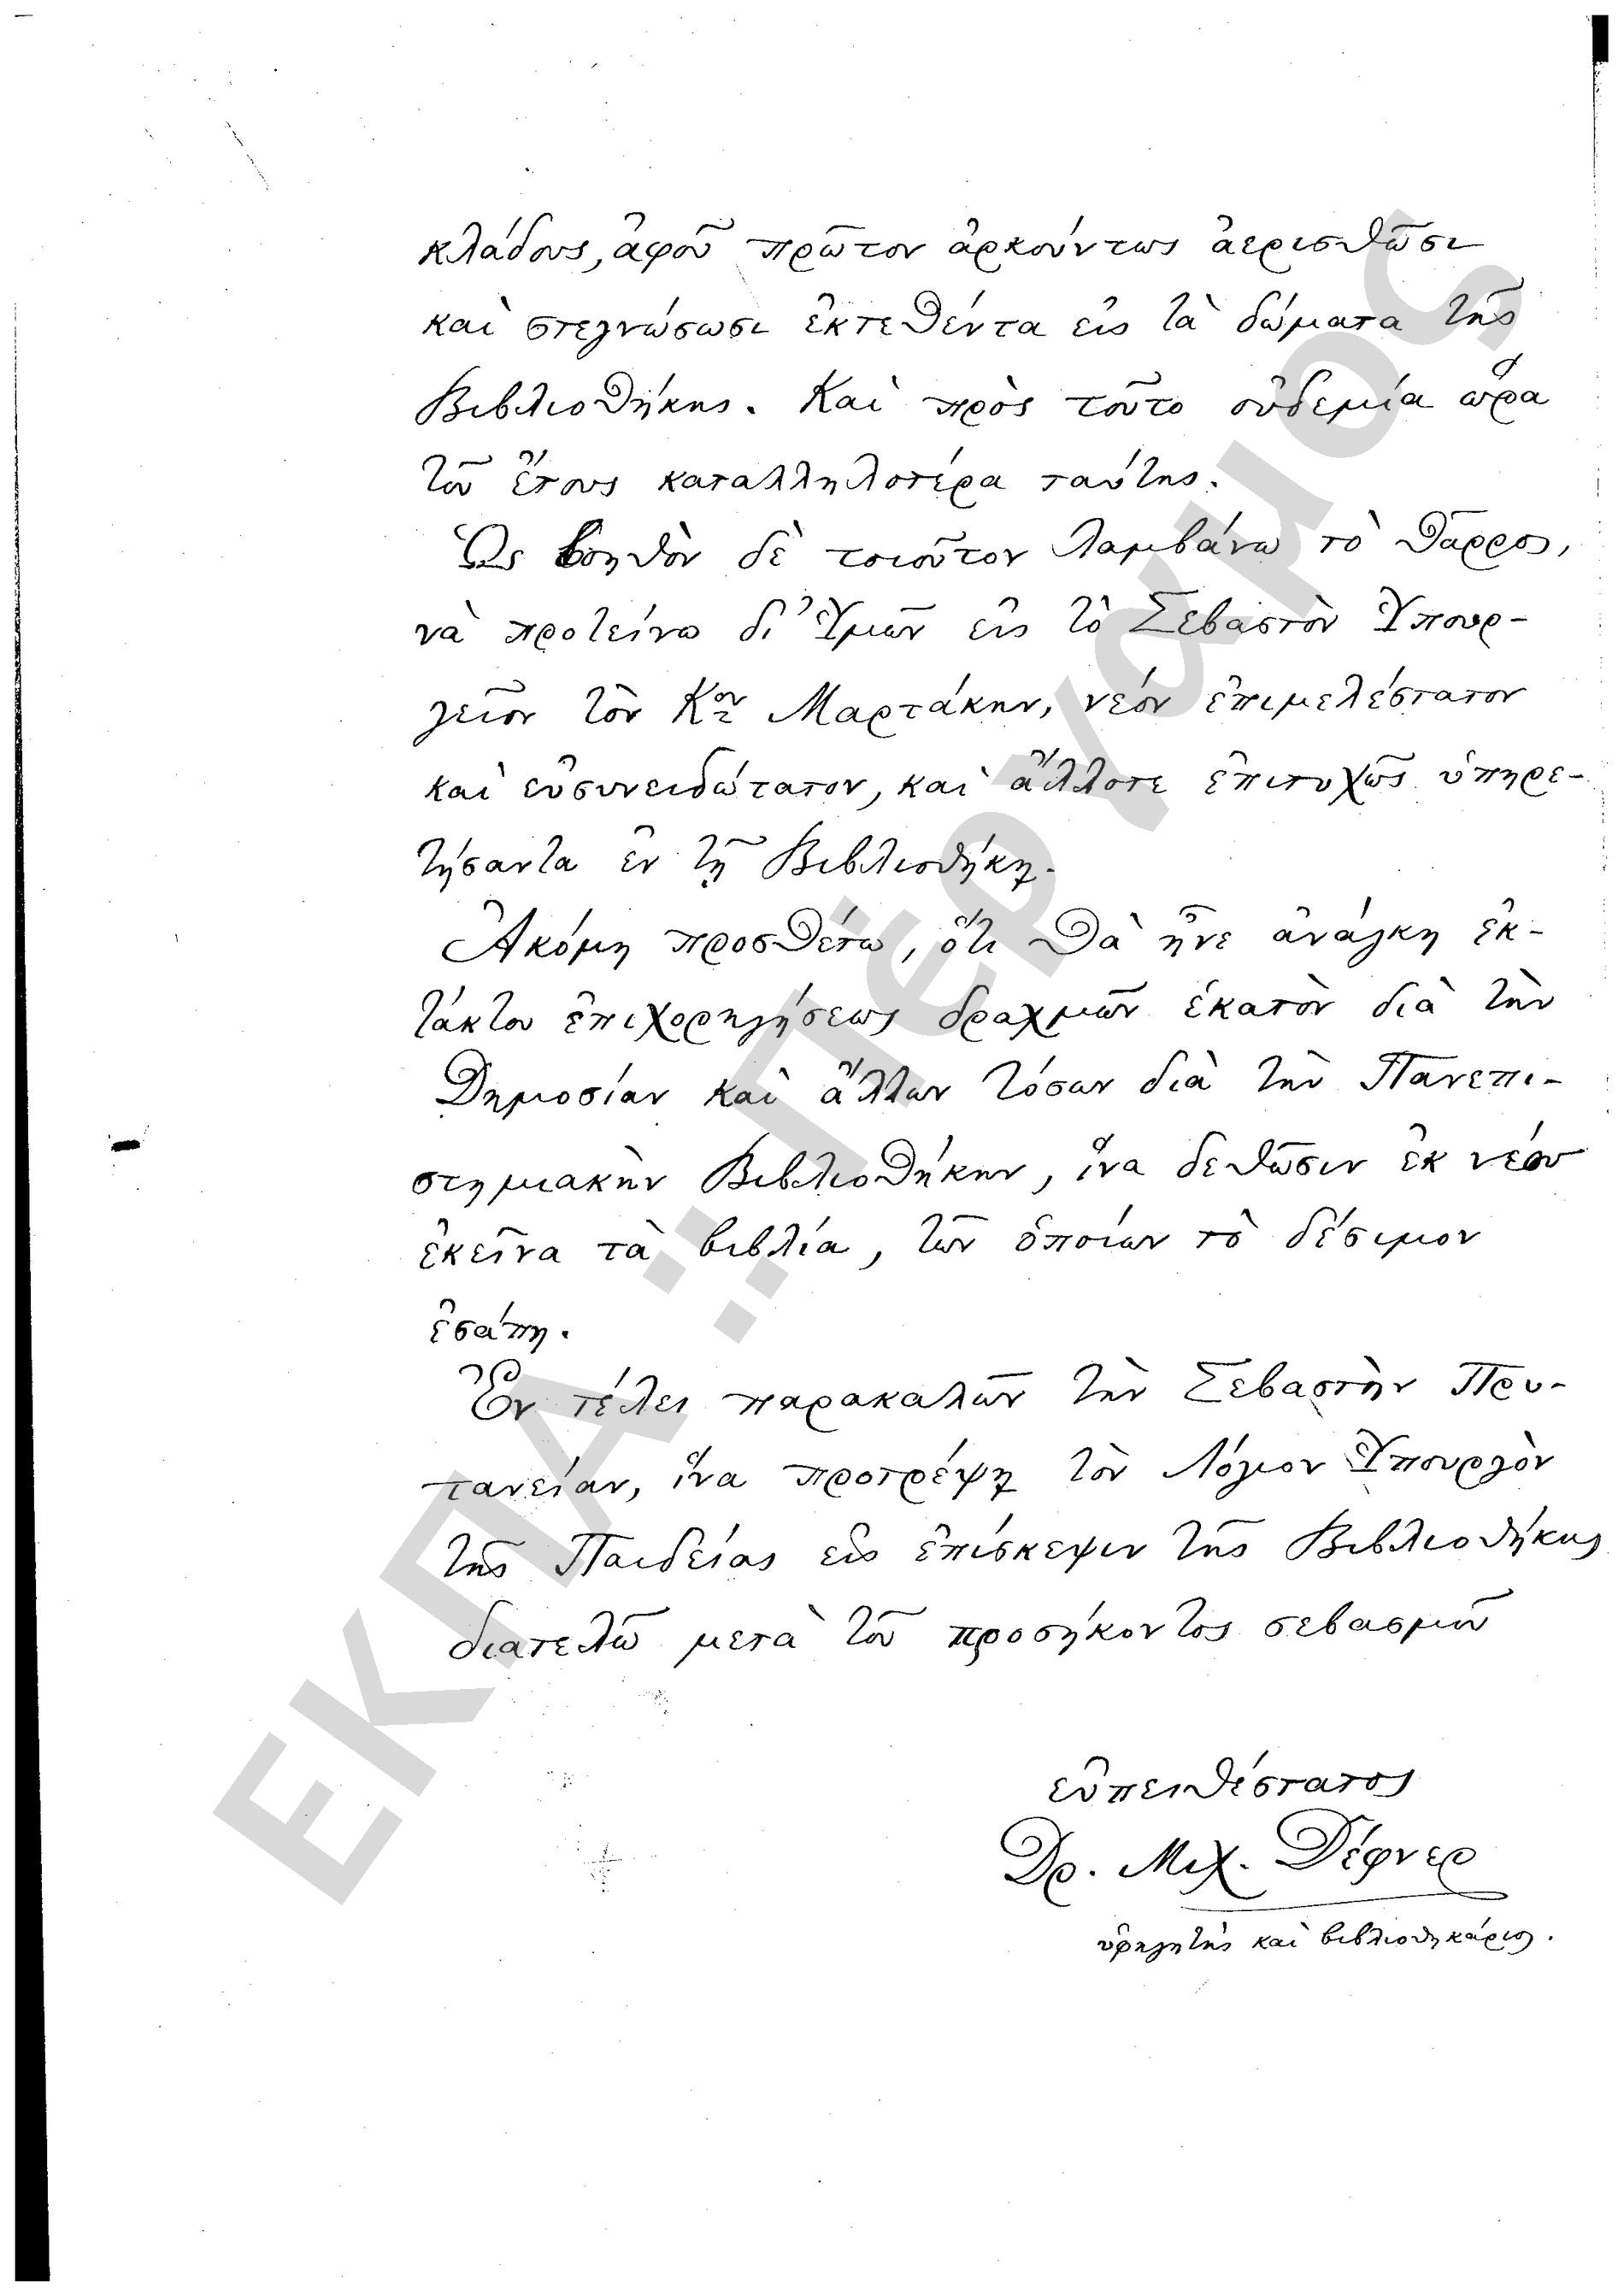 κλάδους, ἀφοῦ πρῶτον ἀρκούντως ἀερισθῶσι
καὶ στεγνώσωσι ἐκτεθέντα εἰς τὰ δώματα τῆς
Βιβλιοθήκης. Καὶ πρὸς τοῦτο οὐδεμία ὥρα
τοῦ ἔτους καταλληλοτέρα ταύτης.
Ὡς βοηθὸν δὲ τοιοῦτον λαμβάνω τὸ θάρρος,
νὰ προτείνω δι' Ὑμῶν εἰς τὸ Σεβαστὸν Ὑπουρ-
γεῖον τὸν Κον Μαρτάκην, νέον ἐπιμελέστατον
καὶ εὐσυνειδώτατον, καὶ ἄλλοτε ἐπιτυχῶς ὑπηρε-
τήσαντα ἐν τῇ Βιβλιοθήκῃ.
Ἀκόμη προσθέτω, ὅτι θὰ ἦνε ἀνάγκη ἐκ-
τάκτου ἐπιχορηγήσεως δραχμῶν ἑκατὸν διὰ τὴν
Δημοσίαν καὶ ἄλλων τόσων διὰ τὴν Πανεπι-
στημιακὴν Βιβλιοθήκην, ἵνα δεθῶσιν ἐκ νέου
ἐκεῖνα τὰ βιβλία, τῶν ὁποίων τὸ δέσιμον
ἐσάπη.
Ἐν τέλει παρακαλῶν τὴν Σεβαστὴν Πρυ-
τανείαν, ἵνα προτρέψῃ τὸν Λόγιον Ὑπουργὸν
τῆς Παιδείας εἰς ἐπίσκεψιν τῆς Βιβλιοθήκης
διατελῶ μετὰ τοῦ προσήκοντος σεβασμοῦ
εὐπειθέστατος
Δρ. Μιχ. Δέφνερ
ὑφηγητὴς καὶ βιβλιοθηκάριος.
ΕΚΠΑ :: Πέργαμος